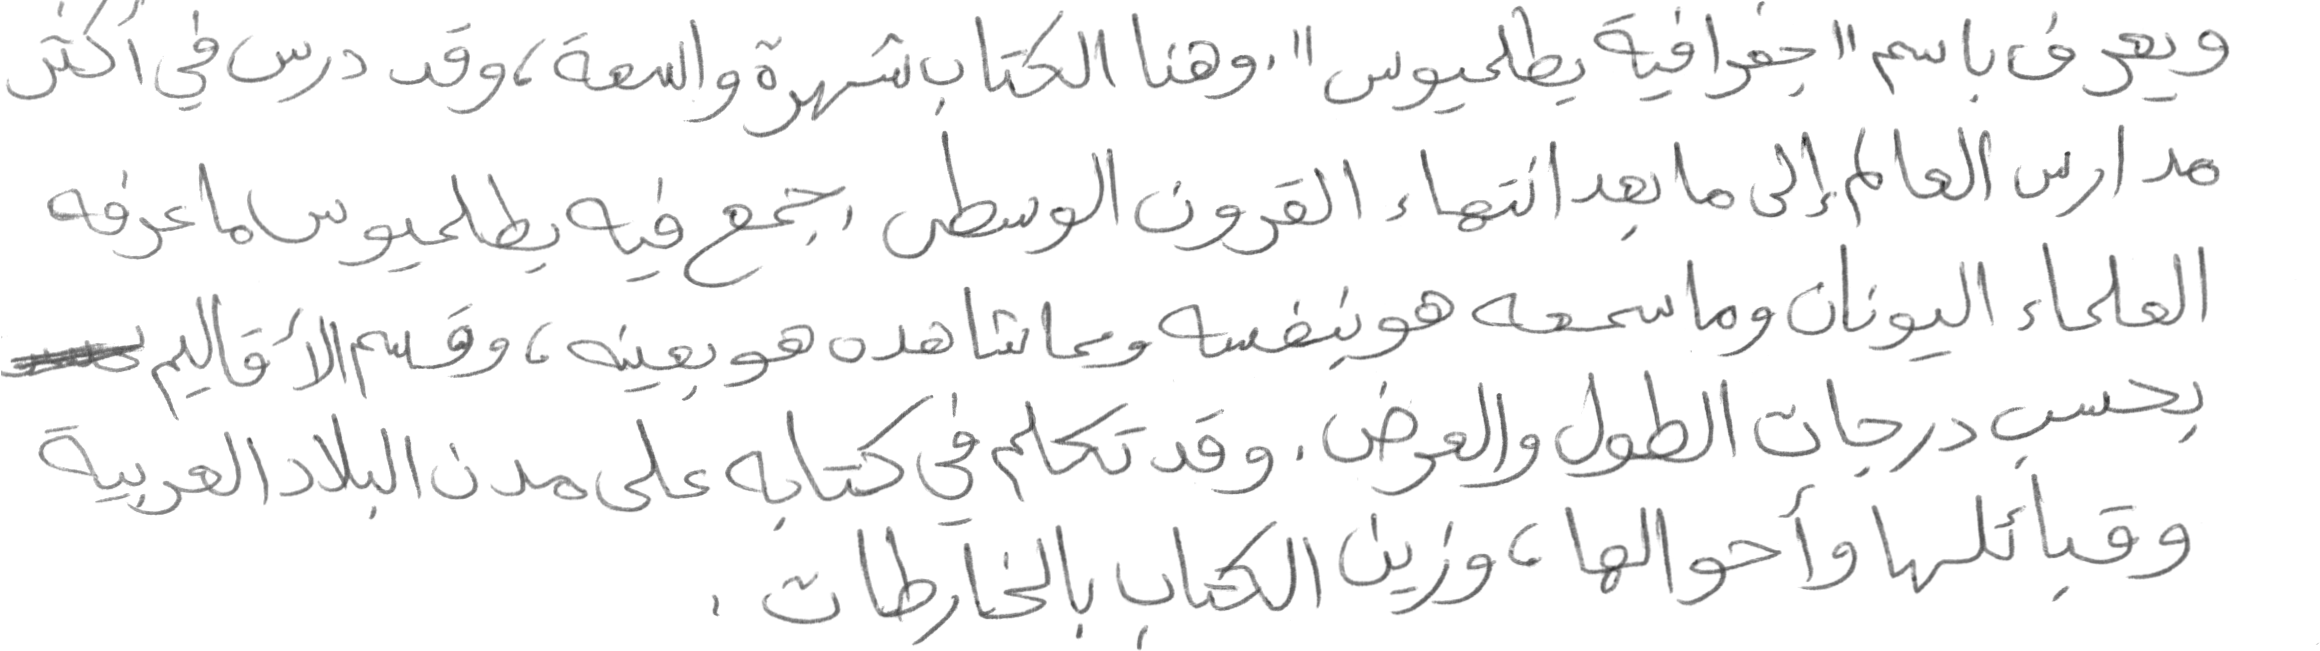 ويعرف باسم "جغرافية بطلميوس". وهنا الكتاب شهرة واسعة، وقد درس في أكثر
مدارس العالم إلى ما بعد انتهاء القرون الوسطى. جمع فيه بطلميوس ما عرفه
العلماء اليونان وما سمعه هو بنفسه وما شاهده هو بعينه، وقسم الأقاليم
بحسب درجات الطول والعرض. وقد تكلم في كتابه على مدن البلاد العربية
وقبائلها وأحوالها، وزين الكتاب بالخارطات.